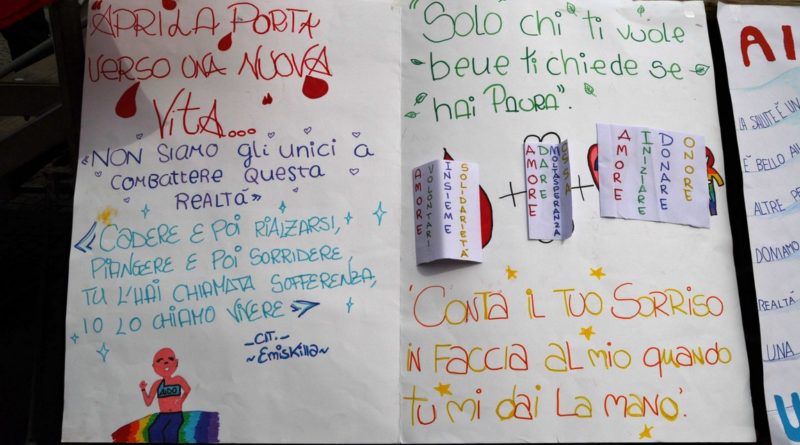 "APRI LA PORTA
VERSO UNA NUOVA
VITA..."
"NON SIAMO gli UNICI A
COMBATTERE QUESTA
REALTÀ"
«CADERE E POI RIALZARSI,
PIANGERE E POI SORRIDERE,
TU L'HAI CHIAMATA SOFFERENZA,
IO LO CHIAMO VIVERE»
_CIT._
~EmisKilla~
AIDO
"SOLO chi ti VUOLE
beue ti chiede se
hai PAURA".
AMORE
VOLONTARI
INSIEME
SOLIDARIETÀ
+
AMORE
DARE
MOLTASPERANZA
+
AMORE
INIZIARE
DONARE
ONORE
'CONTA il TUO SORRISO
iN FACCIA AL MIO QUANDO
tU Mi DAI LA MANO'.
AI
LA SALUTE È UN
È BELLO AI
ALTRE PE
DONIAMO
REALTÀ
UNA